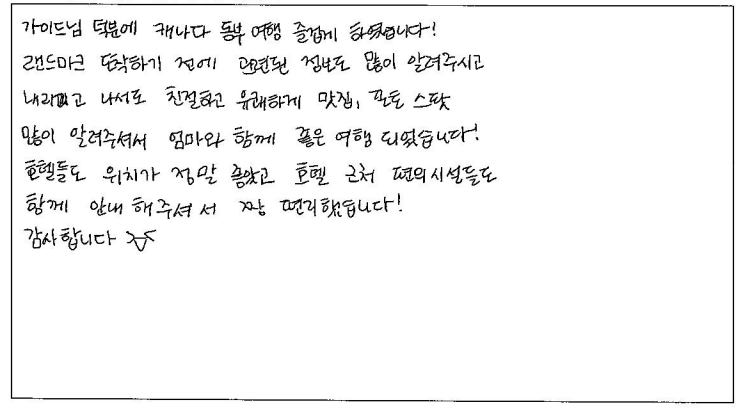 가이드님 덕분에 캐나다 동부 여행 즐겁게 하였습니다!
랜드마크 도착하기 전에 관련된 정보도 많이 알려주시고
내리고 나서도 친절하고 유쾌하게 맛집, 포토 스팟
많이 알려주셔서 엄마와 함께 좋은 여행 되었습니다!
호텔들도 위치가 정말 좋았고 호텔 근처 편의시설들도
함께 안내 해주셔서 짱 편리했습니다!
감사합니다